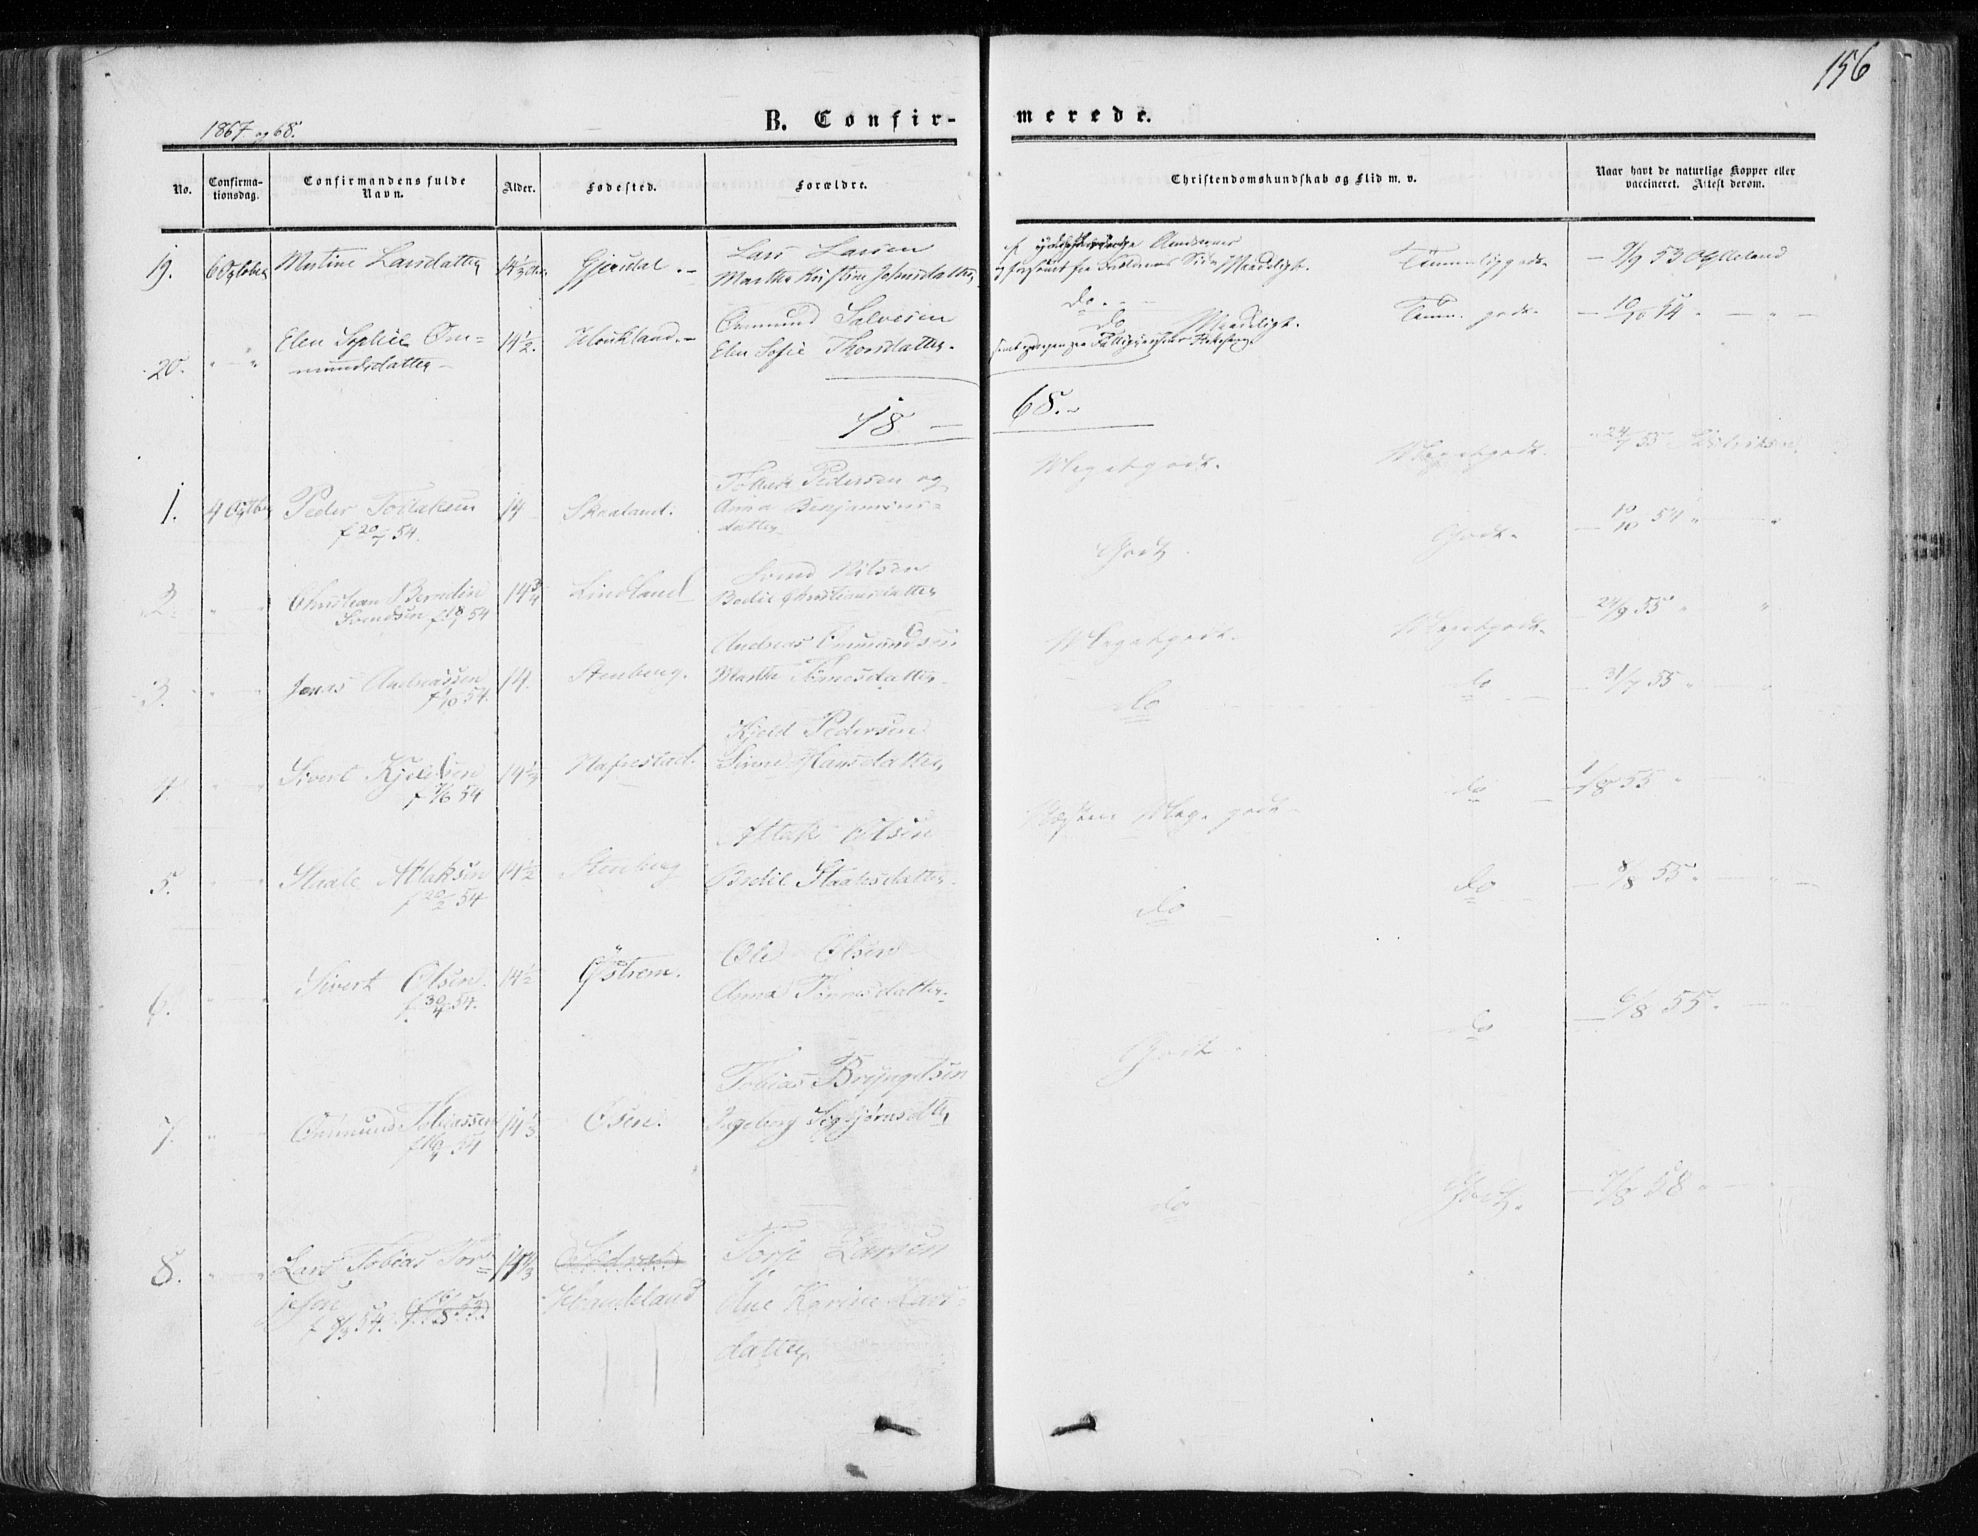 156
1867 og 68.
B. Confir-
merede.
No.
Confirma-
tionsdag.
Confirmandens fulde
Navn.
Alder.
Fødested.
Forældre.
Christendomskundskab og Flid m. v.
Naar havt de naturlige Kopper eller
vaccineret. Attest derom.
19.
6 October
Martine Larsdatter
Gjerdal.
Lars Larsen
Martha Kirstine Johnsdatter
Maadeligt.
20.
" - "
Elen Sophie Om=
mundsdatter
14½.
Houkland.
Ommund Salvesen
Elen Sofie Thorsdatter.
do.
do Maadeligt.
Tem. godt.
18 - 68.
1.
4 October
Peder Tollaksen
f 20/7 54.
14
Skaaland.
Tollak Pedersen og
Anna Benjamins=
datter
Megetgodt.
Megetgodt.
2.
" "
Christian Berntin
Svendsen
14¾
Lindland
Svend Nilsen
Bodil Christiansdatter
Godt.
Godt.
10/10 54 "
3.
" "
Jonas Andreassen
f 1/10 54.
14.
Stenberg.
Andreas Ommundsen
Martha Tønnesdatter
Megetgodt.
Megetgodt.
24/9 55 "
4
" "
Sivert Kjeldsen
f 7/6 54
Kjeld Pedersen
Sirene Hansdatter
do
do
31/7 55 "
5.
" "
Staale Atlaksen
f 20/2 54
14½
Stenberg
Atlak Olsen
Bodil Staalesdatter.
Næsten Meg. godt
do
1/8 55 "
6.
" "
Sivert Olsen.
f. 30/4 54.
14½
Østrem.
Ole Olsen
Anna Tønnesdatter.
do
do
8/8 55 "
7.
" "
Ommund Tobiassen
14⅓
Osen.
Tobias Bryngelsen
Ingeborg Sigbjørnsdtr
Godt.
do
6/8 55.
8.
" "
Lars Tobias Tor=
jesen
f 9/3 54.
Haukeland
Torje Larsen
Ane Karine Lars=
datter
do
Godt.
7/8 58 "